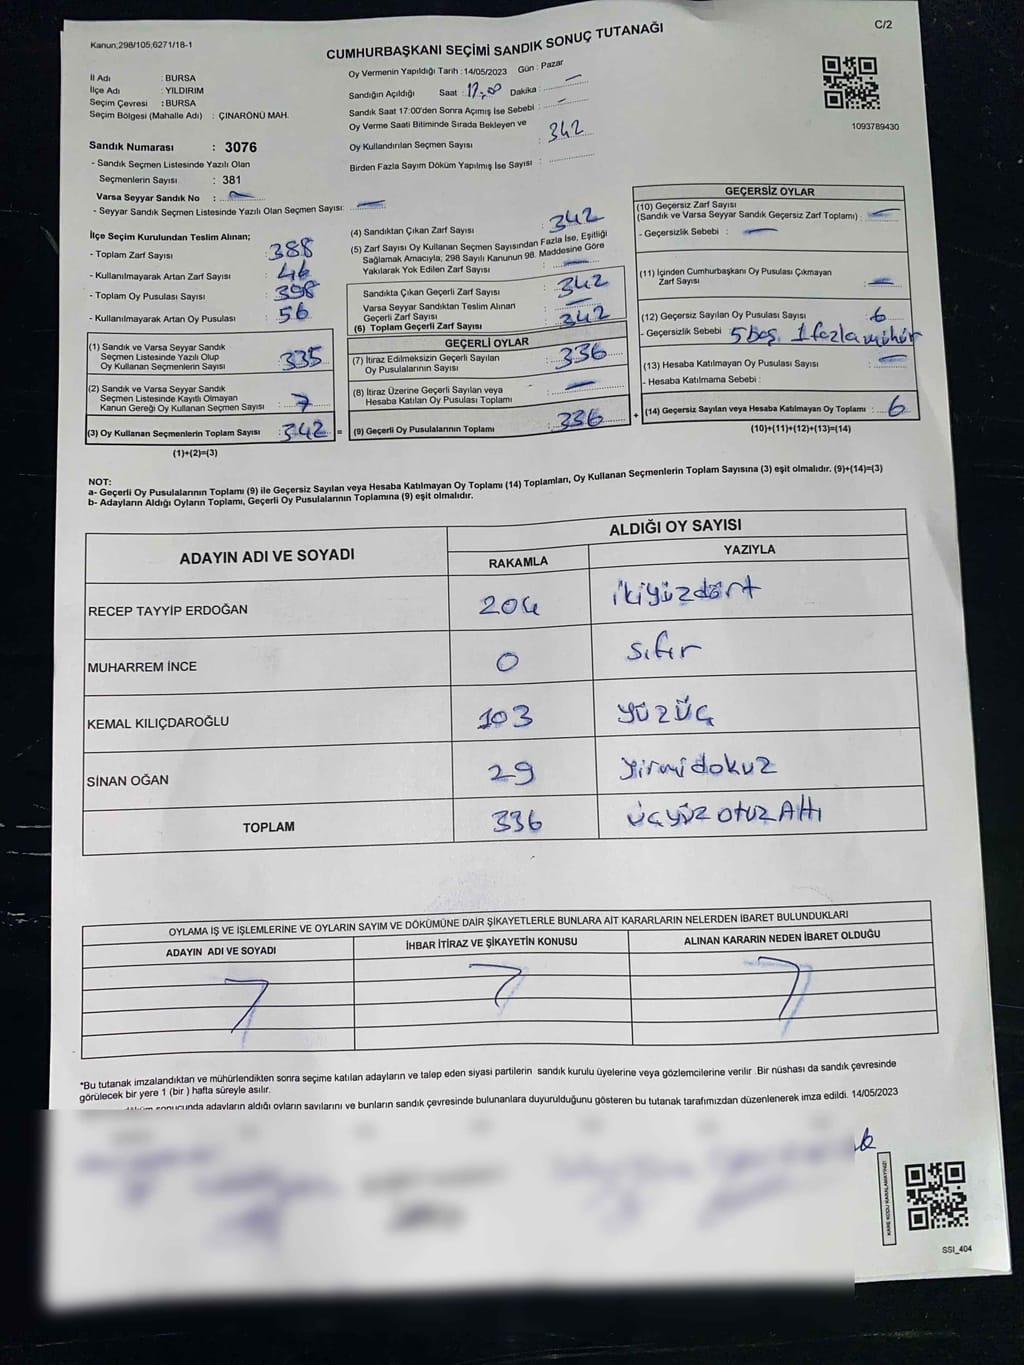 Kanun;298/105,6271/18-1
C/2
CUMHURBAŞKANI SEÇİMİ SANDIK SONUÇ TUTANAĞI
İl Adı : BURSA
İlçe Adı : YILDIRIM
Seçim Çevresi : BURSA
Seçim Bölgesi (Mahalle Adı) : ÇINARÖNÜ MAH.
Sandık Numarası : 3076
- Sandık Seçmen Listesinde Yazılı Olan
Seçmenlerin Sayısı : 381
Varsa Seyyar Sandık No :
- Seyyar Sandık Seçmen Listesinde Yazılı Olan Seçmen Sayısı:
Oy Vermenin Yapıldığı Tarih : 14/05/2023 Gün : Pazar
Sandığın Açıldığı Saat : 17,00 Dakika :
Sandık Saat 17:00'den Sonra Açımış İse Sebebi :
Oy Verme Saati Bitiminde Sırada Bekleyen ve
Oy Kullandırılan Seçmen Sayısı : 342
Birden Fazla Sayım Döküm Yapılmış İse Sayısı :
1093789430
İlçe Seçim Kurulundan Teslim Alınan;
- Toplam Zarf Sayısı : 388
- Kullanılmayarak Artan Zarf Sayısı : 46
- Toplam Oy Pusulası Sayısı : 398
- Kullanılmayarak Artan Oy Pusulası : 56
(1) Sandık ve Varsa Seyyar Sandık
Seçmen Listesinde Yazılı Olup
Oy Kullanan Seçmenlerin Sayısı : 335
(2) Sandık ve Varsa Seyyar Sandık
Seçmen Listesinde Kayıtlı Olmayan
Kanun Gereği Oy Kullanan Seçmen Sayısı : 7
(3) Oy Kullanan Seçmenlerin Toplam Sayısı : 342 =
(1)+(2)=(3)
(4) Sandıktan Çıkan Zarf Sayısı : 342
(5) Zarf Sayısı Oy Kullanan Seçmen Sayısından Fazla İse, Eşitliği
Sağlamak Amacıyla; 298 Sayılı Kanunun 98. Maddesine Göre
Yakılarak Yok Edilen Zarf Sayısı :
Sandıkta Çıkan Geçerli Zarf Sayısı : 342
Varsa Seyyar Sandıktan Teslim Alınan
Geçerli Zarf Sayısı :
(6) Toplam Geçerli Zarf Sayısı : 342
GEÇERLİ OYLAR
(7) İtiraz Edilmeksizin Geçerli Sayılan
Oy Pusulalarının Sayısı : 336
(8) İtiraz Üzerine Geçerli Sayılan veya
Hesaba Katılan Oy Pusulası Toplamı :
(9) Geçerli Oy Pusulalarının Toplamı : 336 +
GEÇERSİZ OYLAR
(10) Geçersiz Zarf Sayısı
(Sandık ve Varsa Seyyar Sandık Geçersiz Zarf Toplamı) :
- Geçersizlik Sebebi :
(11) İçinden Cumhurbaşkanı Oy Pusulası Çıkmayan
Zarf Sayısı :
(12) Geçersiz Sayılan Oy Pusulası Sayısı : 6
- Geçersizlik Sebebi : 5 boş. 1 fazla mühür
(13) Hesaba Katılmayan Oy Pusulası Sayısı :
- Hesaba Katılmama Sebebi :
(14) Geçersiz Sayılan veya Hesaba Katılmayan Oy Toplamı : 6
(10)+(11)+(12)+(13)=(14)
NOT:
a- Geçerli Oy Pusulalarının Toplamı (9) ile Geçersiz Sayılan veya Hesaba Katılmayan Oy Toplamı (14) Toplamları, Oy Kullanan Seçmenlerin Toplam Sayısına (3) eşit olmalıdır. (9)+(14)=(3)
b- Adayların Aldığı Oyların Toplamı, Geçerli Oy Pusulalarının Toplamına (9) eşit olmalıdır.
ADAYIN ADI VE SOYADI
ALDIĞI OY SAYISI
RAKAMLA YAZIYLA
RECEP TAYYİP ERDOĞAN 204 ikiyüzdört
MUHARREM İNCE 0 sıfır
KEMAL KILIÇDAROĞLU 103 yüzüç
SİNAN OĞAN 29 yirmidokuz
TOPLAM 336 üçyüz otuz Altı
OYLAMA İŞ VE İŞLEMLERİNE VE OYLARIN SAYIM VE DÖKÜMÜNE DAİR ŞİKAYETLERLE BUNLARA AİT KARARLARIN NELERDEN İBARET BULUNDUKLARI
ADAYIN ADI VE SOYADI İHBAR İTİRAZ VE ŞİKAYETİN KONUSU ALINAN KARARIN NEDEN İBARET OLDUĞU
*Bu tutanak imzalandıktan ve mühürlendikten sonra seçime katılan adayların ve talep eden siyasi partilerin sandık kurulu üyelerine veya gözlemcilerine verilir .Bir nüshası da sandık çevresinde
görülecek bir yere 1 (bir ) hafta süreyle asılır.
sonucunda adayların aldığı oyların sayılarını ve bunların sandık çevresinde bulunanlara duyurulduğunu gösteren bu tutanak tarafımızdan düzenlenerek imza edildi. 14/05/2023
KARE KODU KARALAMAYINIZ!
SSI_404